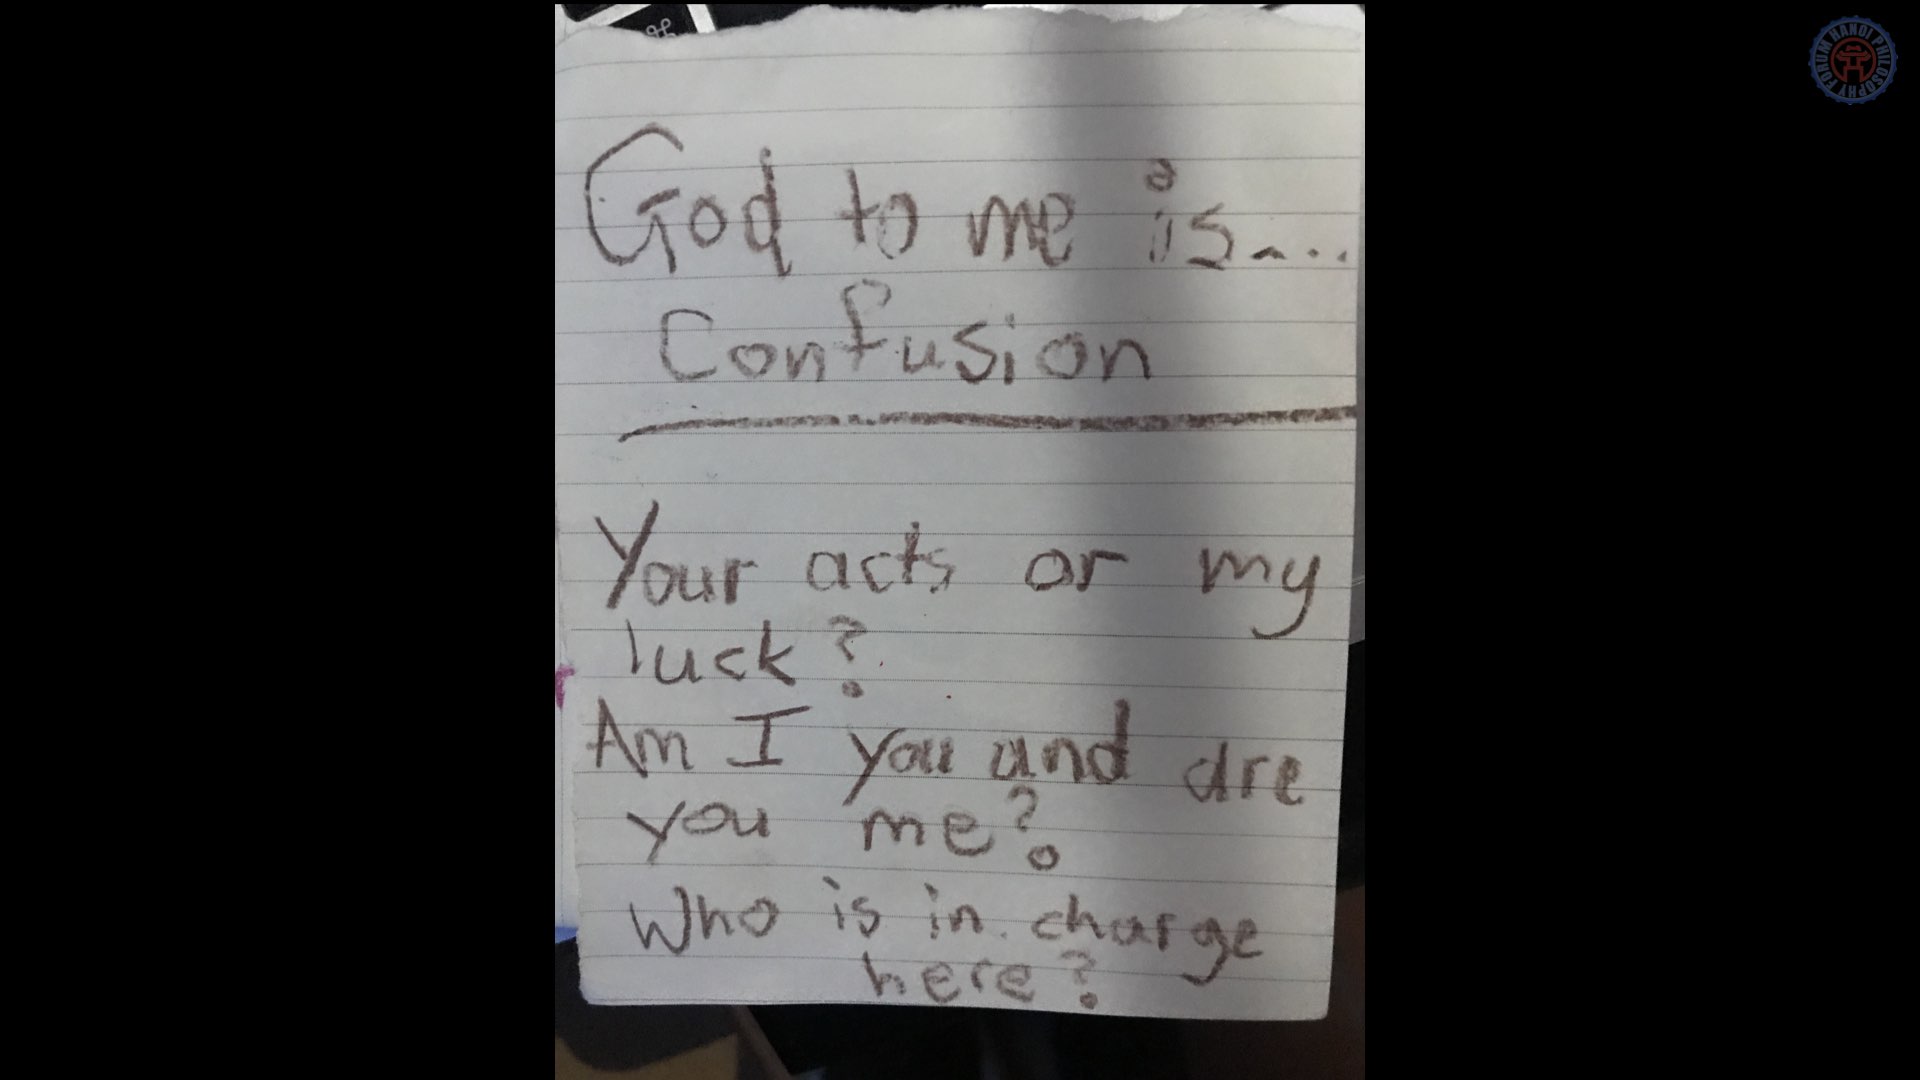 God to me is....
Confusion
Your acts or my
luck?
Am I you and are
you me?
Who is in charge
here?
⌘
FORUM HANOI PHILOSOPHY